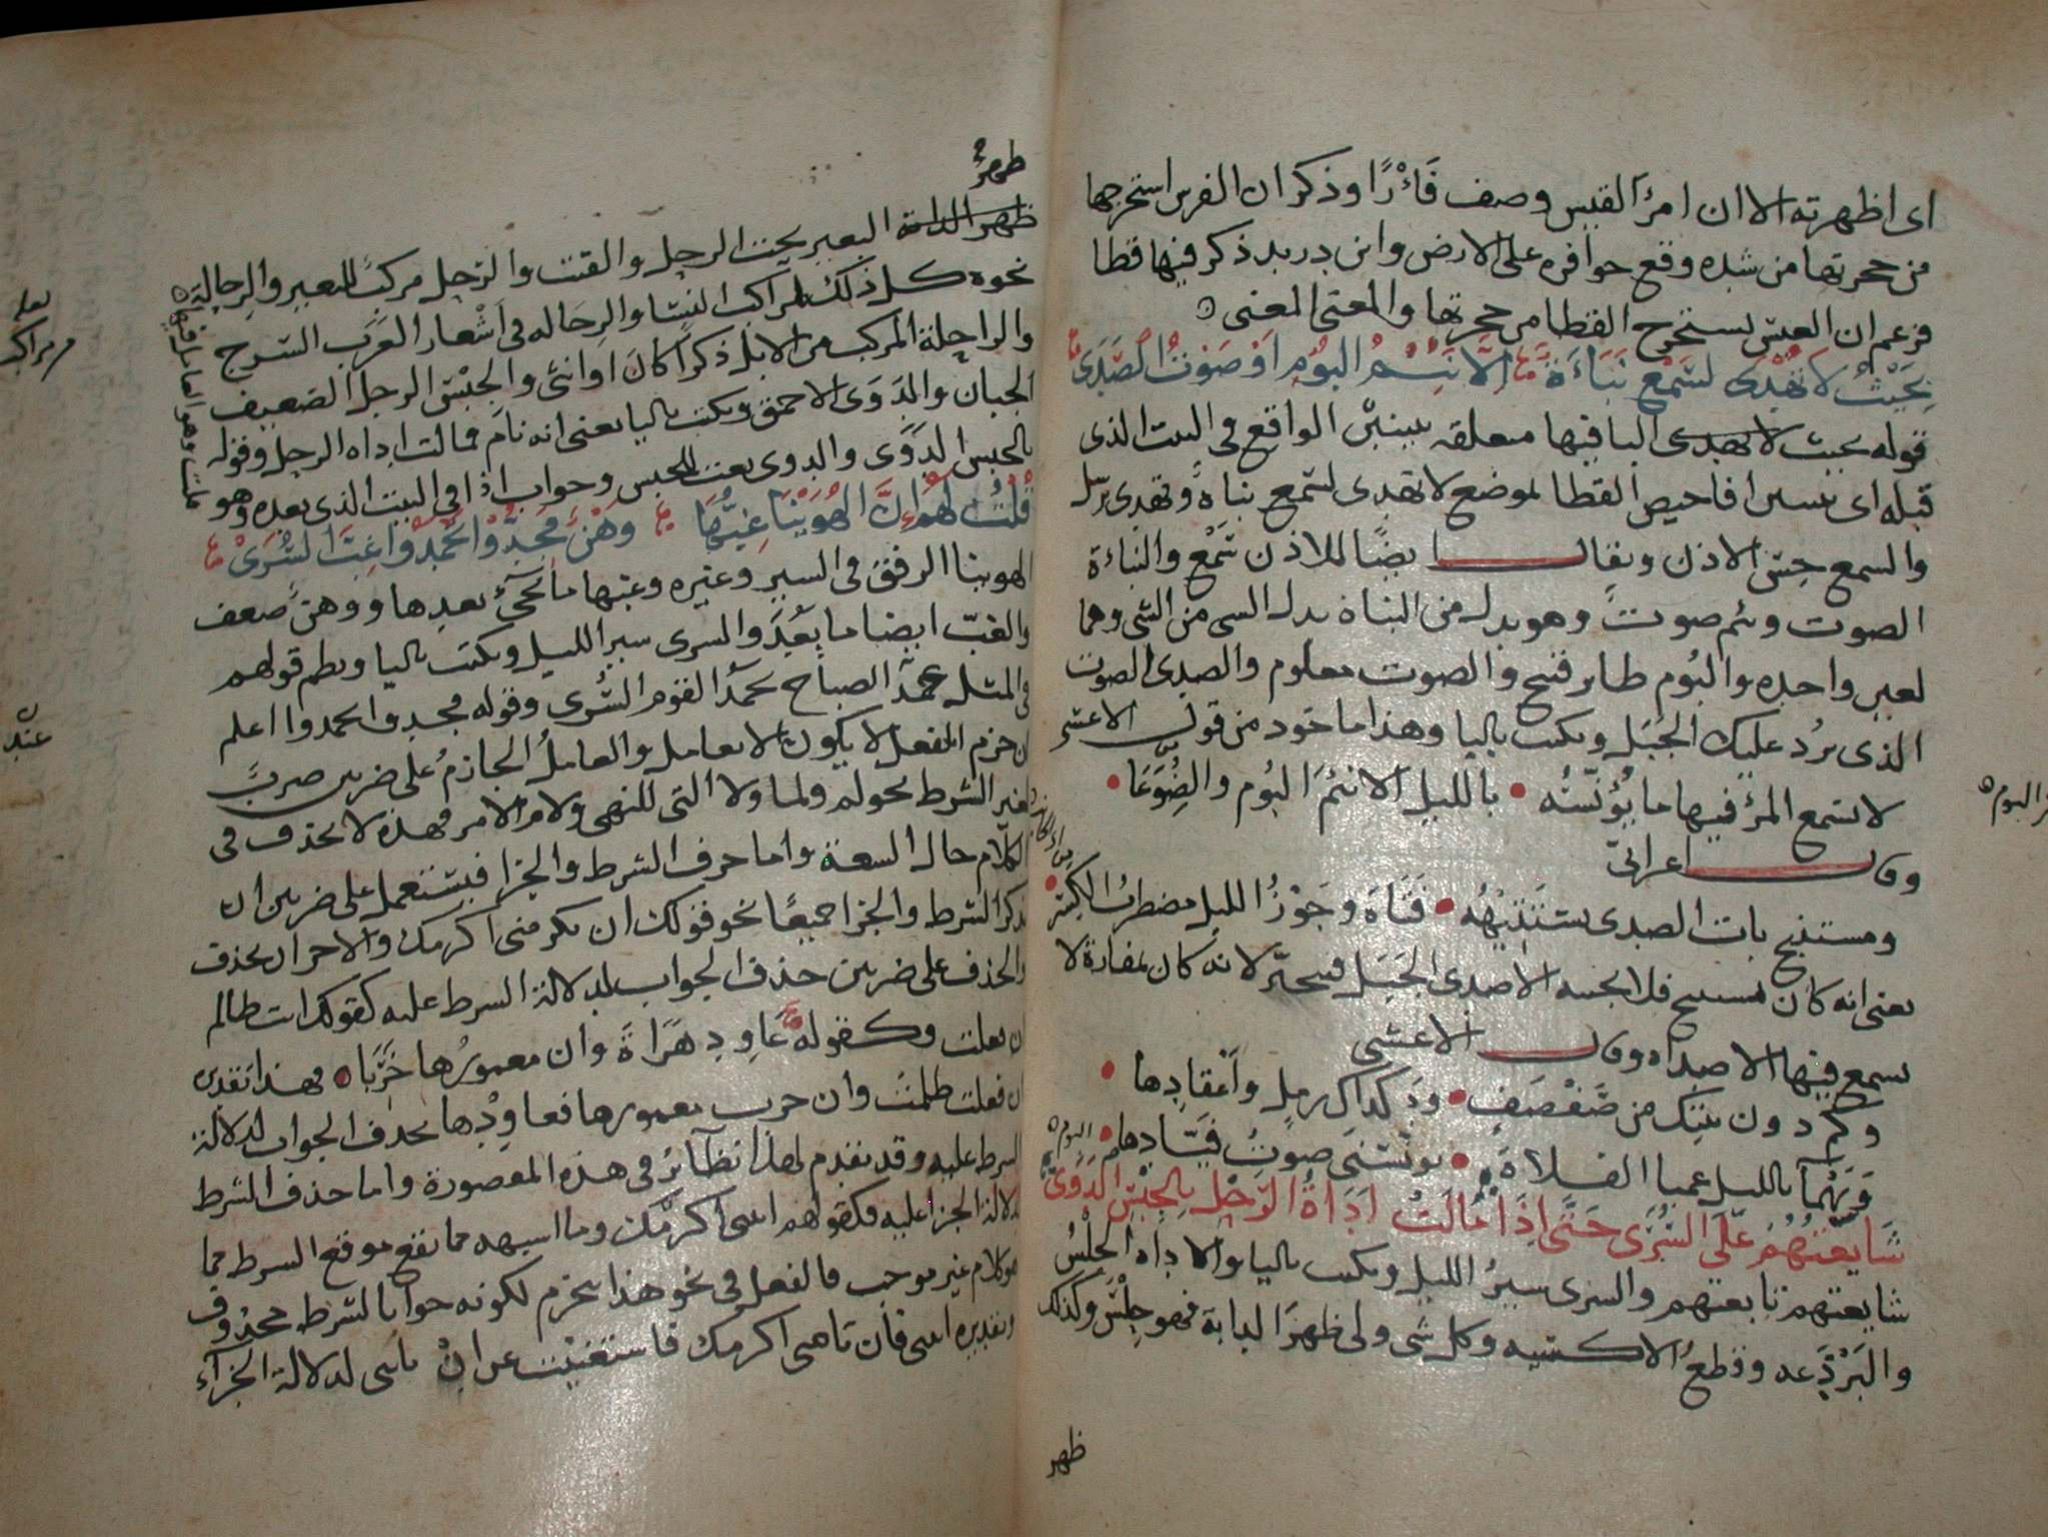 اى اظهرته الا ان امرأ القيس وصف فَأْرًا وذكر ان الفرس استخرجها
من جحرتها من شده وقع حوافره على الارض وابن دريد ذكر فيها قطا
فزعم ان العيس تستخرج القطا من جحرتها والمعنى المعنى
بِحَيْثُ لا تُهْدَى لِسَمْع نَبَاءَةٌ اِلَّا نَئِيْمُ البُوْمِ اَوْ صَوْتُ الصَّدَى
قوله بحيث لا تهدى البا فيها متعلقه بيبين الواقع فى البيت الذى
قبله اى يبين افاحيص القطا بموضع لا تهدى لسمع نباة وتهدى ترسل
والسمع حِسّ الاذن ويقال ايضًا للاذن سَمْع والنباءة
الصوت ونئم صوت وهو بدل من النباة بدل الشى من الشى وهما
لعين واحده والبُوم طاير قبيح والصوت معلوم والصدى الصوت
الذى يرُد عليك الجبَل ويكتب باليا وهذا ماخود من قول الاعشى
لا يسمع المرؤ فيها ما يُؤنّسُه • بالليل الا نئيمَ البُوم والضُّوَعَا •
وقال اعرابىّ
ومستنبح بات الصدى يستَتيْهُه • فَتَاهَ وجَوْزُ الليل مضطربُ الكِسْرِ •
يعنى انه كان يستنبح فلا يجيبه الا صدى الجَبَل فيتحيّر لانه كان بمفازة لا
يسمع فيها الا صداه وقال الاعشى
وكم دون بيتك من صَفْصَفٍ • ودَكداك رمل واعْقادِها •
ويَهْماَ بالليل عميا الفلاة • يؤنسنى صوتُ فَيّادها •
البوم
شَايَعْتُهُمْ عَلَى السُّرَى حَتَّى اِذَا مَالَتْ اَدَاةُ الرَّحْلِ بِالجِبْسِ الدَّوَى
شايعتهم تابعتهم والسرى سيرُ الليل ويكتب باليا والاداه الحِلْسُ
والبَرْذَعه وقطعُ الاكسيه وكل شى ولى ظهرَ الدابة فهو حِلْسٌ وكذلك
ظهر
البوم
ظهرُ
ظهر الدابة البعير تحت الرحل والقتب والرّحل مركبٌ للبعير والرِحالة
نحوه كل ذلك مراكب النسا والرِحاله فى اَشْعار العَرَب السّرج
والراحلة المركب من الابل ذكرًا كان او انثى والجِبْسُ الرجل الضعيف
الجبان والدَوَى الاحمق ويكتب باليا يعنى انه نامَ فمالت اداه الرحل وقوله
بالجبس الدَوَى والدوى نعت للجبس وجواب اذا فى البيت الذى بعده وهو
قُلْتُ لَهُمْ اِنَّ الهُوَيْنَا غِبُّهَا وَهْنٌ فَجِدُّوْا تَحْمَدُوْا غِبَّ السُّرَىْ
الهوينا الرفق فى السير وغيره وغبها ما يجئ بعدها ووهنٌ ضعف
والغبّ ايضا ما بعْدَ والسرى سير الليل ويكتب باليا ونظم قولهم
فى المثل عند الصباح يحمدُ القوم السُّرى وقوله فجدوا تحمدوا اعلم
ان جزم الفعل لا يكون الا بعامل والعاملُ الجازمُ على ضربين ضربٌ
لغير الشرط نحو لم ولما ولا التى للنهى ولام الامر فهذه لا تحذف فى
الكلام حال السعة واما حرف الشرط والجزا فيستعمل على ضربين ان
يذكر الشرط والجزا جميعًا نحو قولك ان تكرمنى اكرمك والاخر ان يحذف
والحذف على ضربين حذف الجواب لدلالة الشرط عليه كقولك انت ظالم
ان فعلت وكقوله عَاوِدْ هَرَاةَ وان معمورُها خَرِبَا • فهذا تقدير
ان فعلت ظلمت وان خرب معمورها فعاوِدْها بحذف الجواب لدلالة
الشرط عليه وقد تقدم لهذا نظائر فى هذه المقصورة واما حذف الشرط
لدلالة الجزا عليه فكقولهم ايتنى اكرمك وما اشبهه مما يقع موقع الشرط مما
هو كلام غير موجب فالفعل فى نحو هذا ينجزم لكونه جوابا لشرط محذوف
وتقديره ايتنى فان تاتنى اكرمك فاستغنيت عن اِنْ تاتنى لدلالة الجزآء
عند